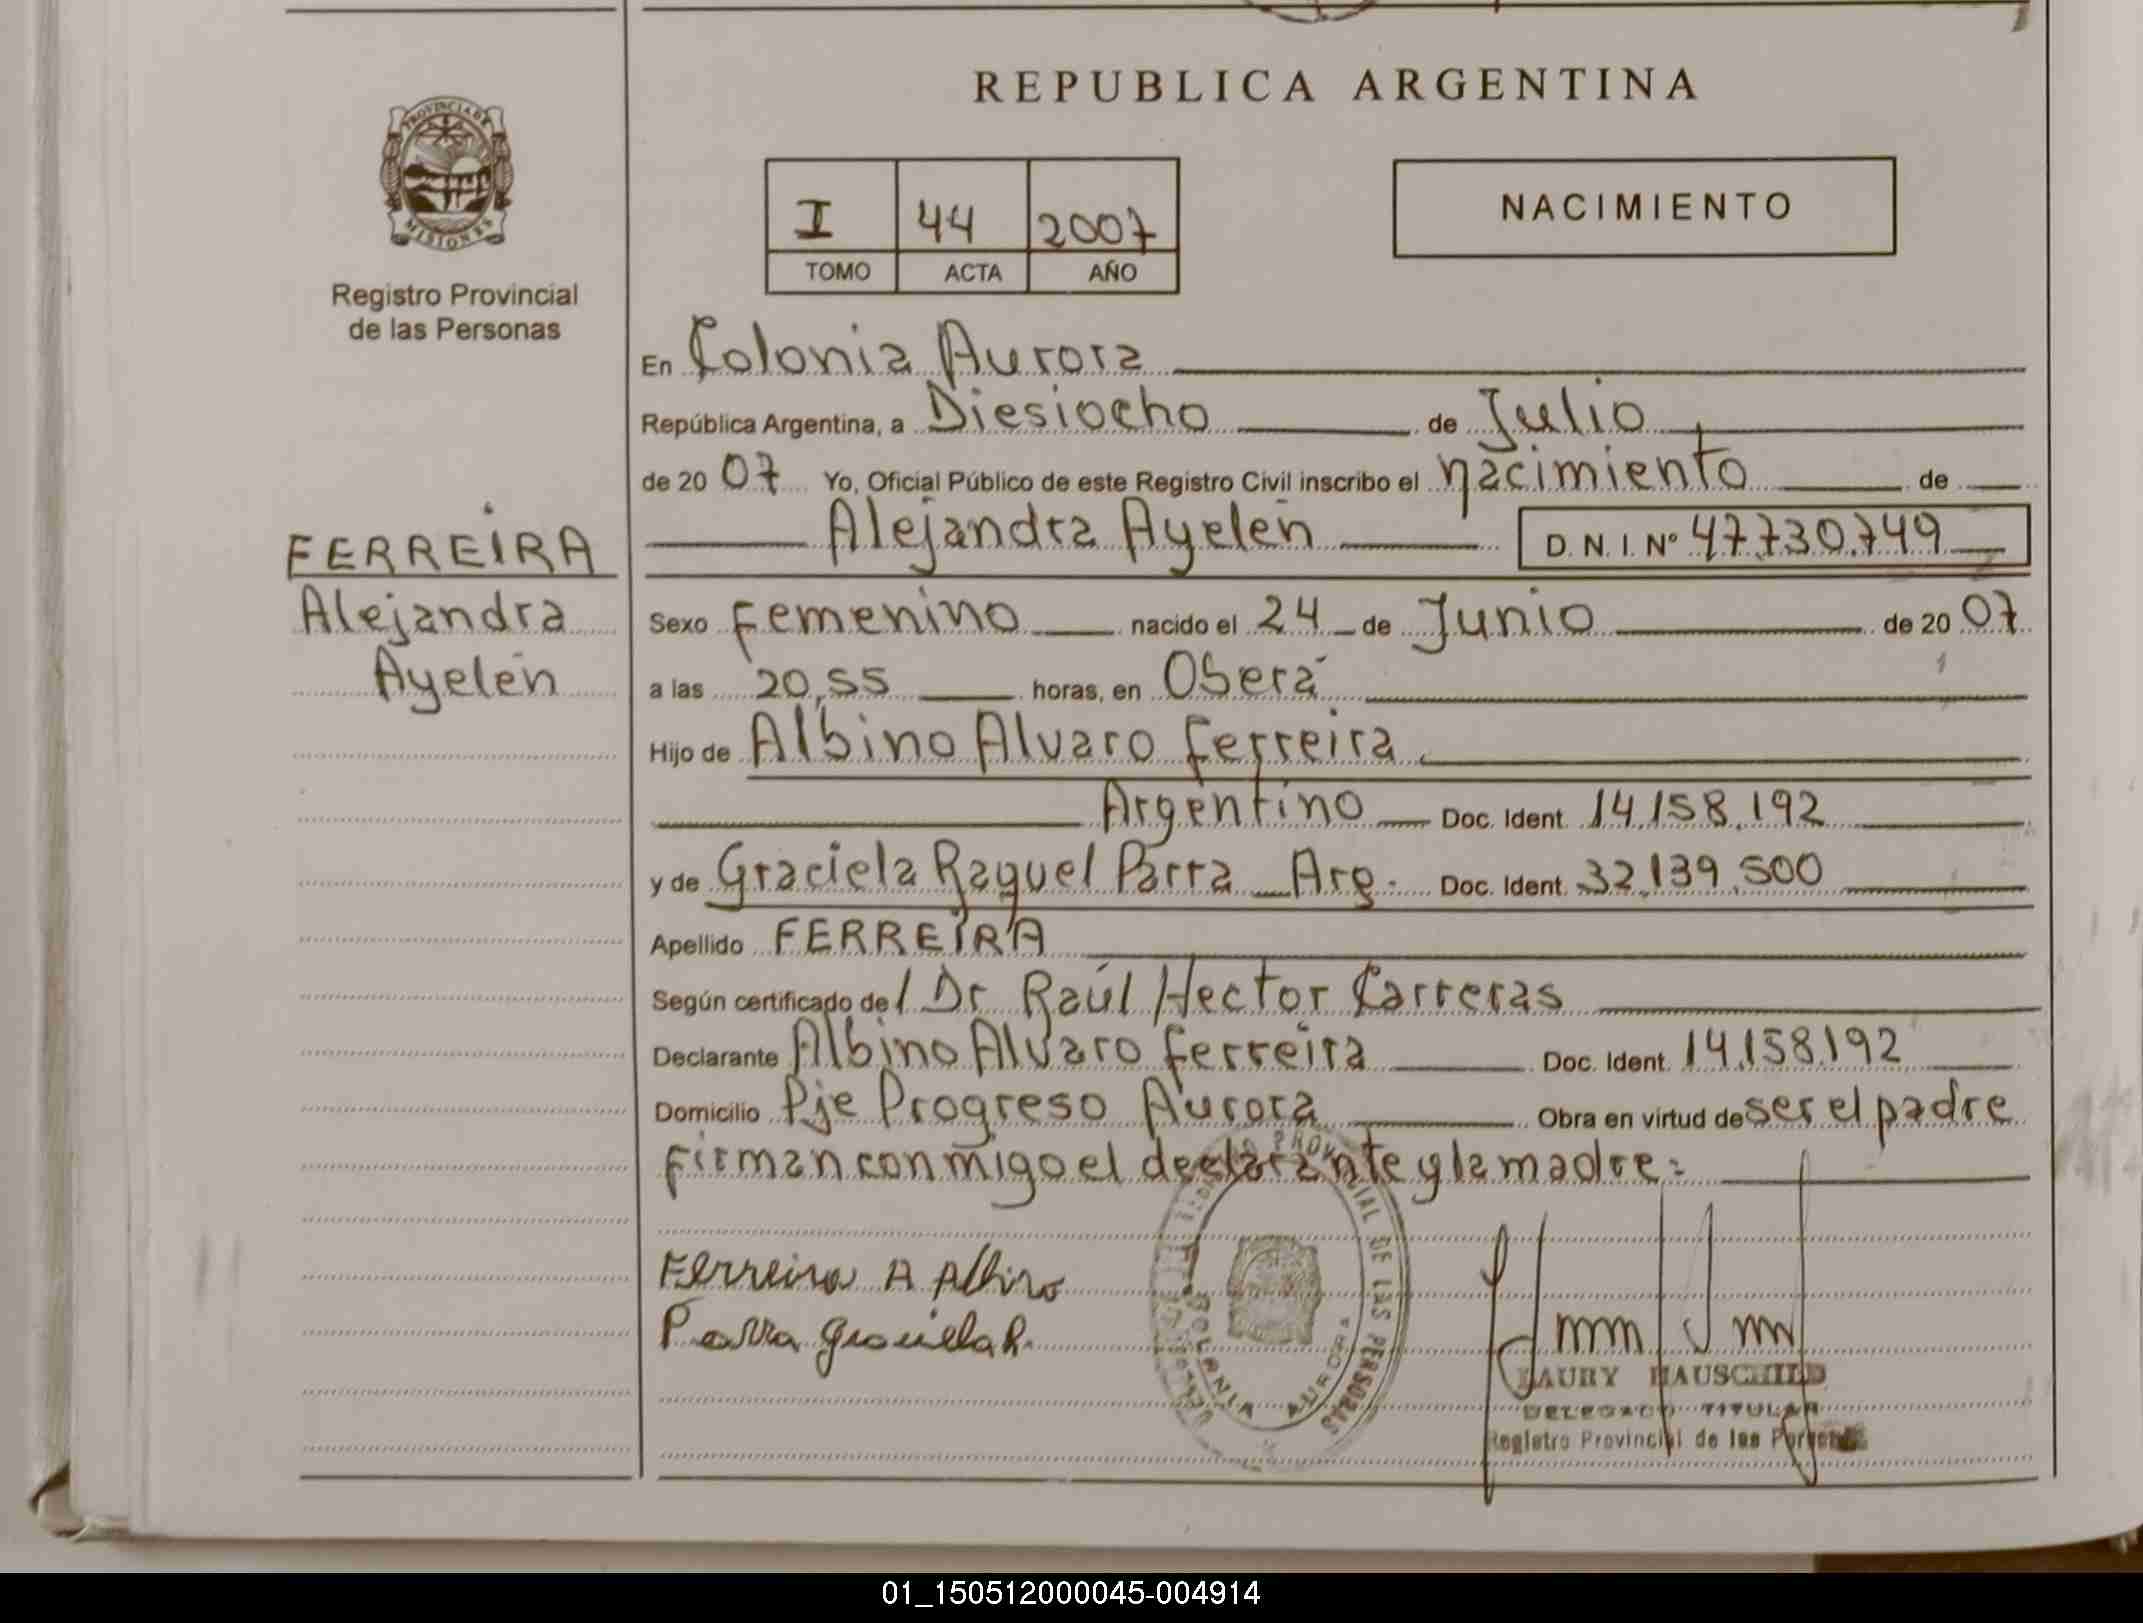 REPUBLICA ARGENTINA
PROVINCIA DE
MISIONES
Registro Provincial
de las Personas
I 44 2007
TOMO ACTA AÑO
NACIMIENTO
En Colonia Aurora
República Argentina, a Diesiocho de Julio
de 20 07 Yo, Oficial Público de este Registro Civil inscribo el nacimiento de
Alejandra Ayelén D. N. I. Nº 47.730.749
FERREIRA
Alejandra
Ayelén
Sexo Femenino nacido el 24 de Junio de 20 07
a las 20,55 horas, en Oberá
Hijo de Albino Alvaro Ferreira
Argentino Doc. Ident. 14.158.192
y de Graciela Raquel Parra Arg. Doc. Ident. 32.139.500
Apellido FERREIRA
Según certificado de l Dr Raúl Hector Carreras
Declarante Albino Alvaro Ferreira Doc. Ident. 14.158.192
Domicilio Pje Progreso Aurora Obra en virtud de ser el padre
firman conmigo el declarante y la madre:
Ferreira A Albino
Parra Graciela R.
PROVINCIAL DE LAS PERSONAS
COLONIA AURORA
LAURY HAUSCHILD
DELEGADO TITULAR
Registro Provincial de las Personas
01_150512000045-004914